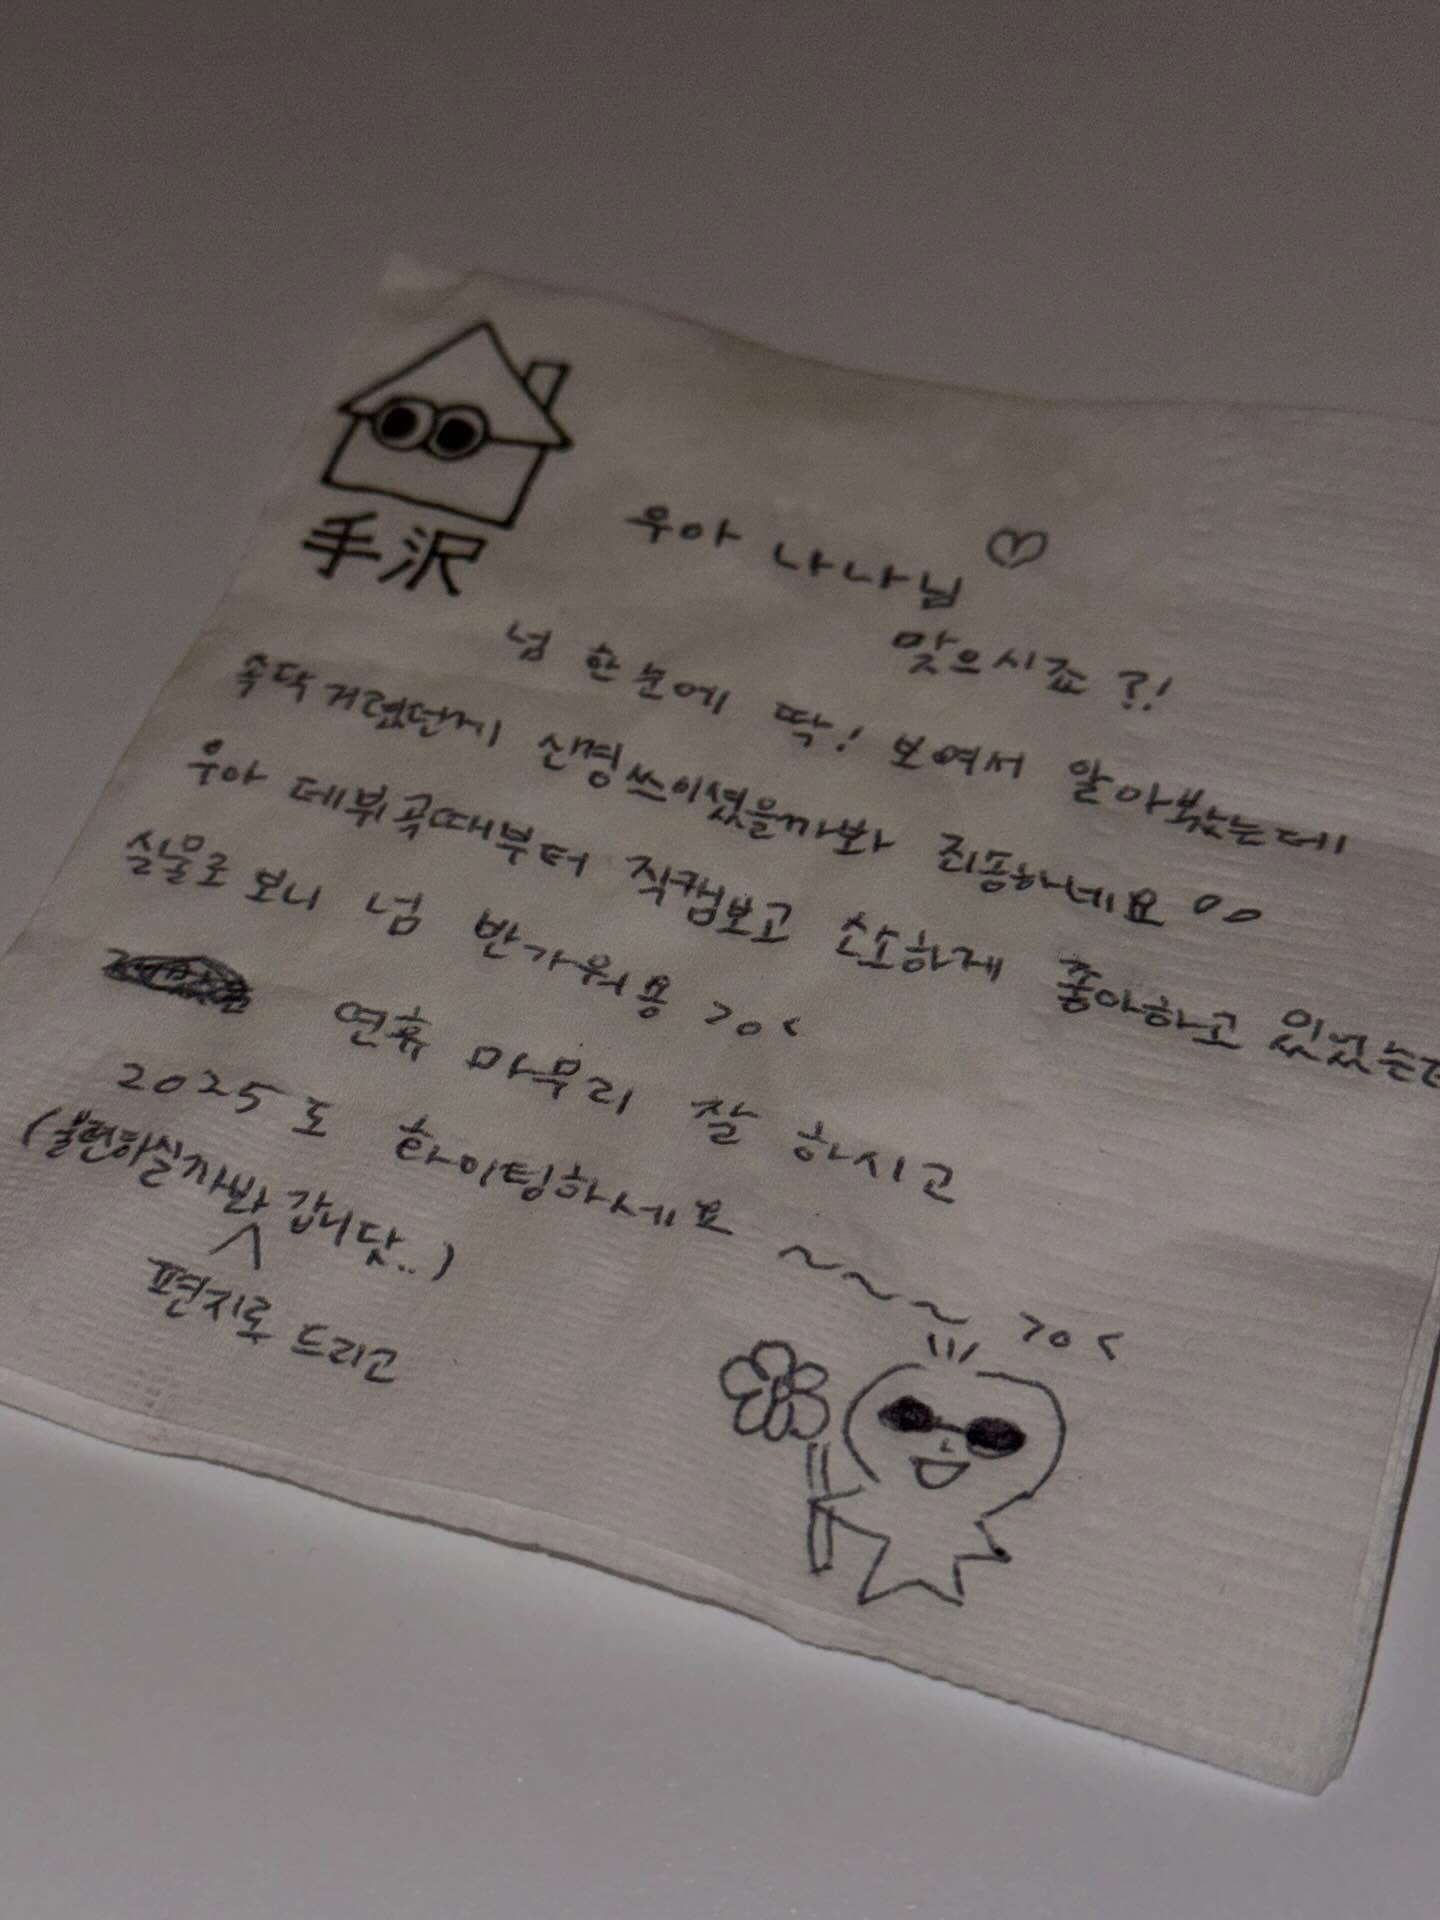 手沢
우아 나나님 ♡
맞으시죠?!
넘 한눈에 딱! 보여서 알아봤는데
속닥거렸던게 신경쓰이셨을까봐 죄송하네요 00
우아 데뷔곡때부터 직캠보고 소소하게 좋아하고 있었는데
실물로 보니 넘 반가워용 >o<
연휴 마무리 잘 하시고
2025도 화이팅하세요 ~~~ >o<
(불편하실까봐 갑니닷..)
편지로 드리고